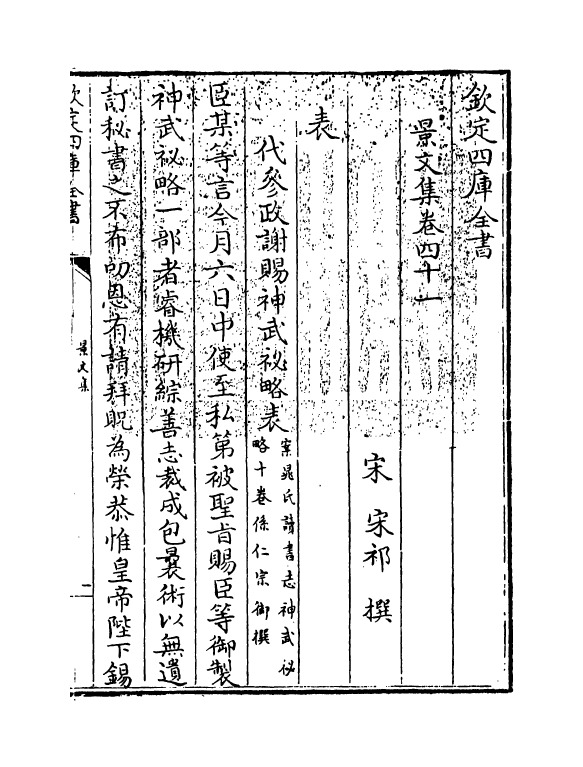 欽定四庫全書
景文集卷四十一
宋 宋祁 撰
表
代參政謝賜神武祕略表案晁氏讀書志神武祕
略十卷係仁宗御撰
臣某等言今月六日中使至私第被聖旨賜臣等御製
神武祕略一部者睿機研綜善志裁成包曩術以無遺
訂秘書之未布叨恩有請拜貺為榮恭惟皇帝陛下錫
欽定四庫全書
景文集
一